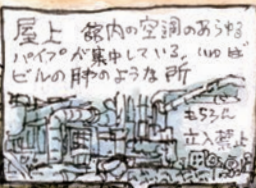 屋上 館内の空調のあらゆる
パイプが集中している、いわば
ビルの肺のような所
もちろん
立入禁止